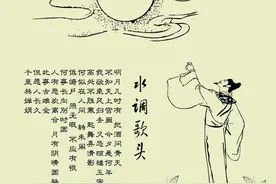 水调歌头
明月几时有 把酒问青天
不知天上宫阙 今夕是何年
我欲乘风归去 又恐琼楼玉宇
高处不胜寒 起舞弄清影
何似在人间 转朱阁
低绮户 照无眠 不应有恨
何事长向别时圆
人有悲欢离合 月有阴晴圆缺
此事古难全
但愿人长久
千里共婵娟